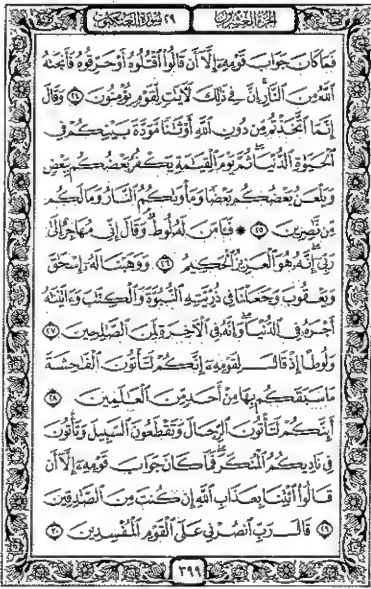 الجزء العشرون ٢٩ سورة العنكبوت
فَمَا كَانَ جَوَابَ قَوْمِهِۦٓ إِلَّآ أَن قَالُوا۟ ٱقْتُلُوهُ أَوْ حَرِّقُوهُ فَأَنجَىٰهُ
ٱللَّهُ مِنَ ٱلنَّارِ إِنَّ فِى ذَٰلِكَ لَـَٔايَٰتٍ لِّقَوْمٍ يُؤْمِنُونَ ٢٤ وَقَالَ
إِنَّمَا ٱتَّخَذْتُم مِّن دُونِ ٱللَّهِ أَوْثَٰنًا مَّوَدَّةَ بَيْنِكُمْ فِى
ٱلْحَيَوٰةِ ٱلدُّنْيَا ثُمَّ يَوْمَ ٱلْقِيَٰمَةِ يَكْفُرُ بَعْضُكُم بِبَعْضٍ
وَيَلْعَنُ بَعْضُكُم بَعْضًا وَمَأْوَىٰكُمُ ٱلنَّارُ وَمَا لَكُم
مِّن نَّٰصِرِينَ ٢٥ ۞ فَـَٔامَنَ لَهُۥ لُوطٌ وَقَالَ إِنِّى مُهَاجِرٌ إِلَىٰ
رَبِّىٓ إِنَّهُۥ هُوَ ٱلْعَزِيزُ ٱلْحَكِيمُ ٢٦ وَوَهَبْنَا لَهُۥٓ إِسْحَٰقَ
وَيَعْقُوبَ وَجَعَلْنَا فِى ذُرِّيَّتِهِ ٱلنُّبُوَّةَ وَٱلْكِتَٰبَ وَءَاتَيْنَٰهُ
أَجْرَهُۥ فِى ٱلدُّنْيَا وَإِنَّهُۥ فِى ٱلْـَٔاخِرَةِ لَمِنَ ٱلصَّٰلِحِينَ ٢٧
وَلُوطًا إِذْ قَالَ لِقَوْمِهِۦٓ إِنَّكُمْ لَتَأْتُونَ ٱلْفَٰحِشَةَ
مَا سَبَقَكُم بِهَا مِنْ أَحَدٍ مِّنَ ٱلْعَٰلَمِينَ ٢٨
أَئِنَّكُمْ لَتَأْتُونَ ٱلرِّجَالَ وَتَقْطَعُونَ ٱلسَّبِيلَ وَتَأْتُونَ
فِى نَادِيكُمُ ٱلْمُنكَرَ فَمَا كَانَ جَوَابَ قَوْمِهِۦٓ إِلَّآ أَن
قَالُوا۟ ٱئْتِنَا بِعَذَابِ ٱللَّهِ إِن كُنتَ مِنَ ٱلصَّٰدِقِينَ
٢٩ قَالَ رَبِّ ٱنصُرْنِى عَلَى ٱلْقَوْمِ ٱلْمُفْسِدِينَ ٣٠
٣٩٩